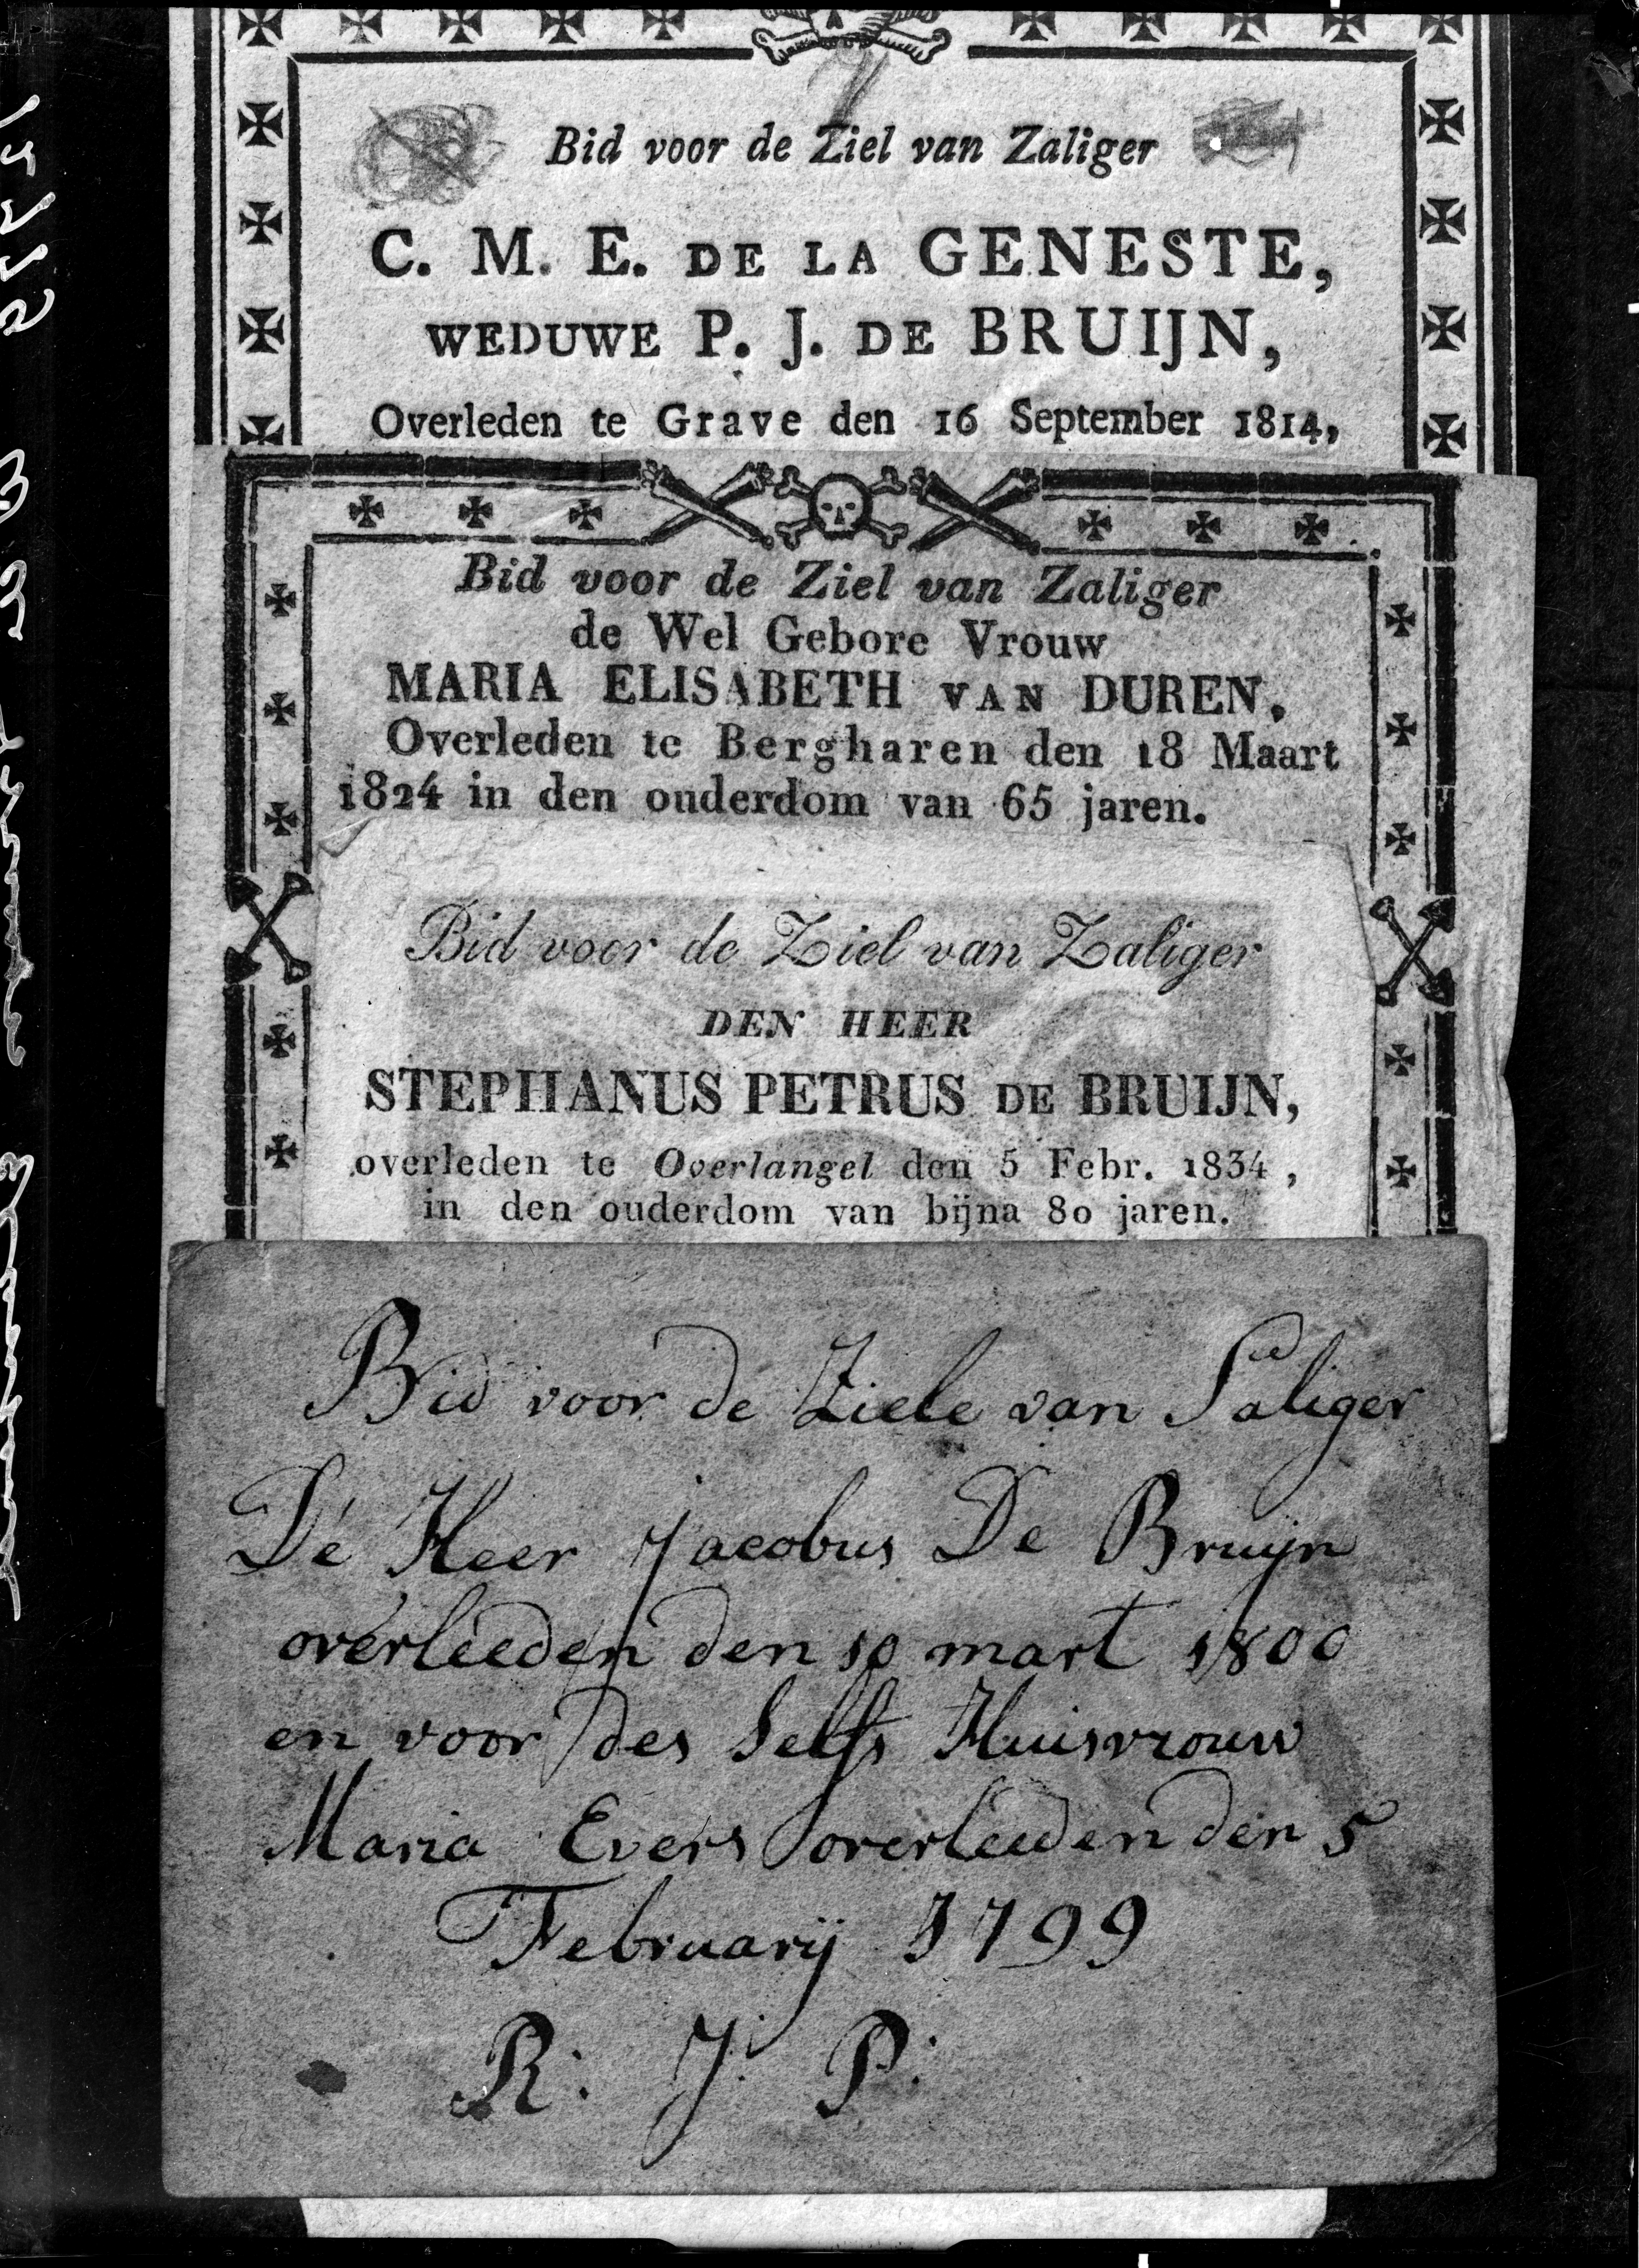 Bid voor de Ziel van Zaliger
C. M. E. DE LA GENESTE,
WEDUWE P. J. DE BRUIJN,
Overleden te Grave den 16 September 1814,
Bid voor de Ziel van Zaliger
de Wel Gebore Vrouw
MARIA ELISABETH VAN DUREN,
Overleden te Bergharen den 18 Maart
1824 in den ouderdom van 65 jaren.
Bid voor de Ziel van Zaliger
DEN HEER
STEPHANUS PETRUS DE BRUIJN,
overleden te Overlangel den 5 Febr. 1834,
in den ouderdom van bijna 80 jaren.
Bid voor de Ziele van Saliger
De Heer Jacobus De Bruijn
overleeden den 10 mart 1800
en voor des Selfs Huisvrouw
Maria Evers overleeden den 5
Februarij 1799
R: J: P: